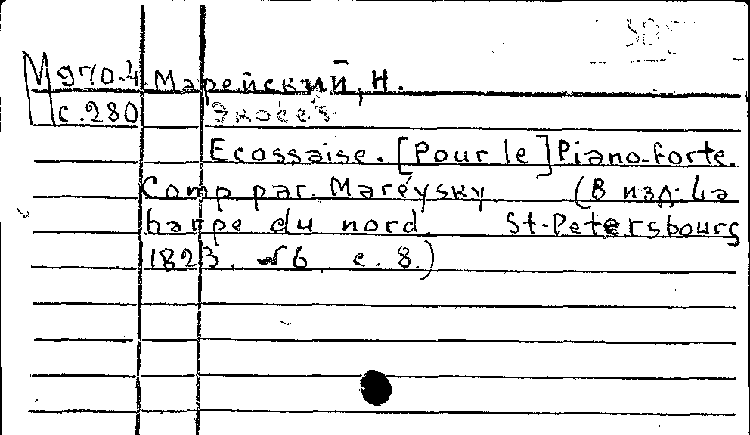 305
М 970.4 Марейский, Н.
с.280 Экосез
Ecossaise. [Pour le] Piano-forte.
Comp. par. Maréysky (В изд: La
harpe du nord. St-Petersbourg
1823. №6 с. 8.)